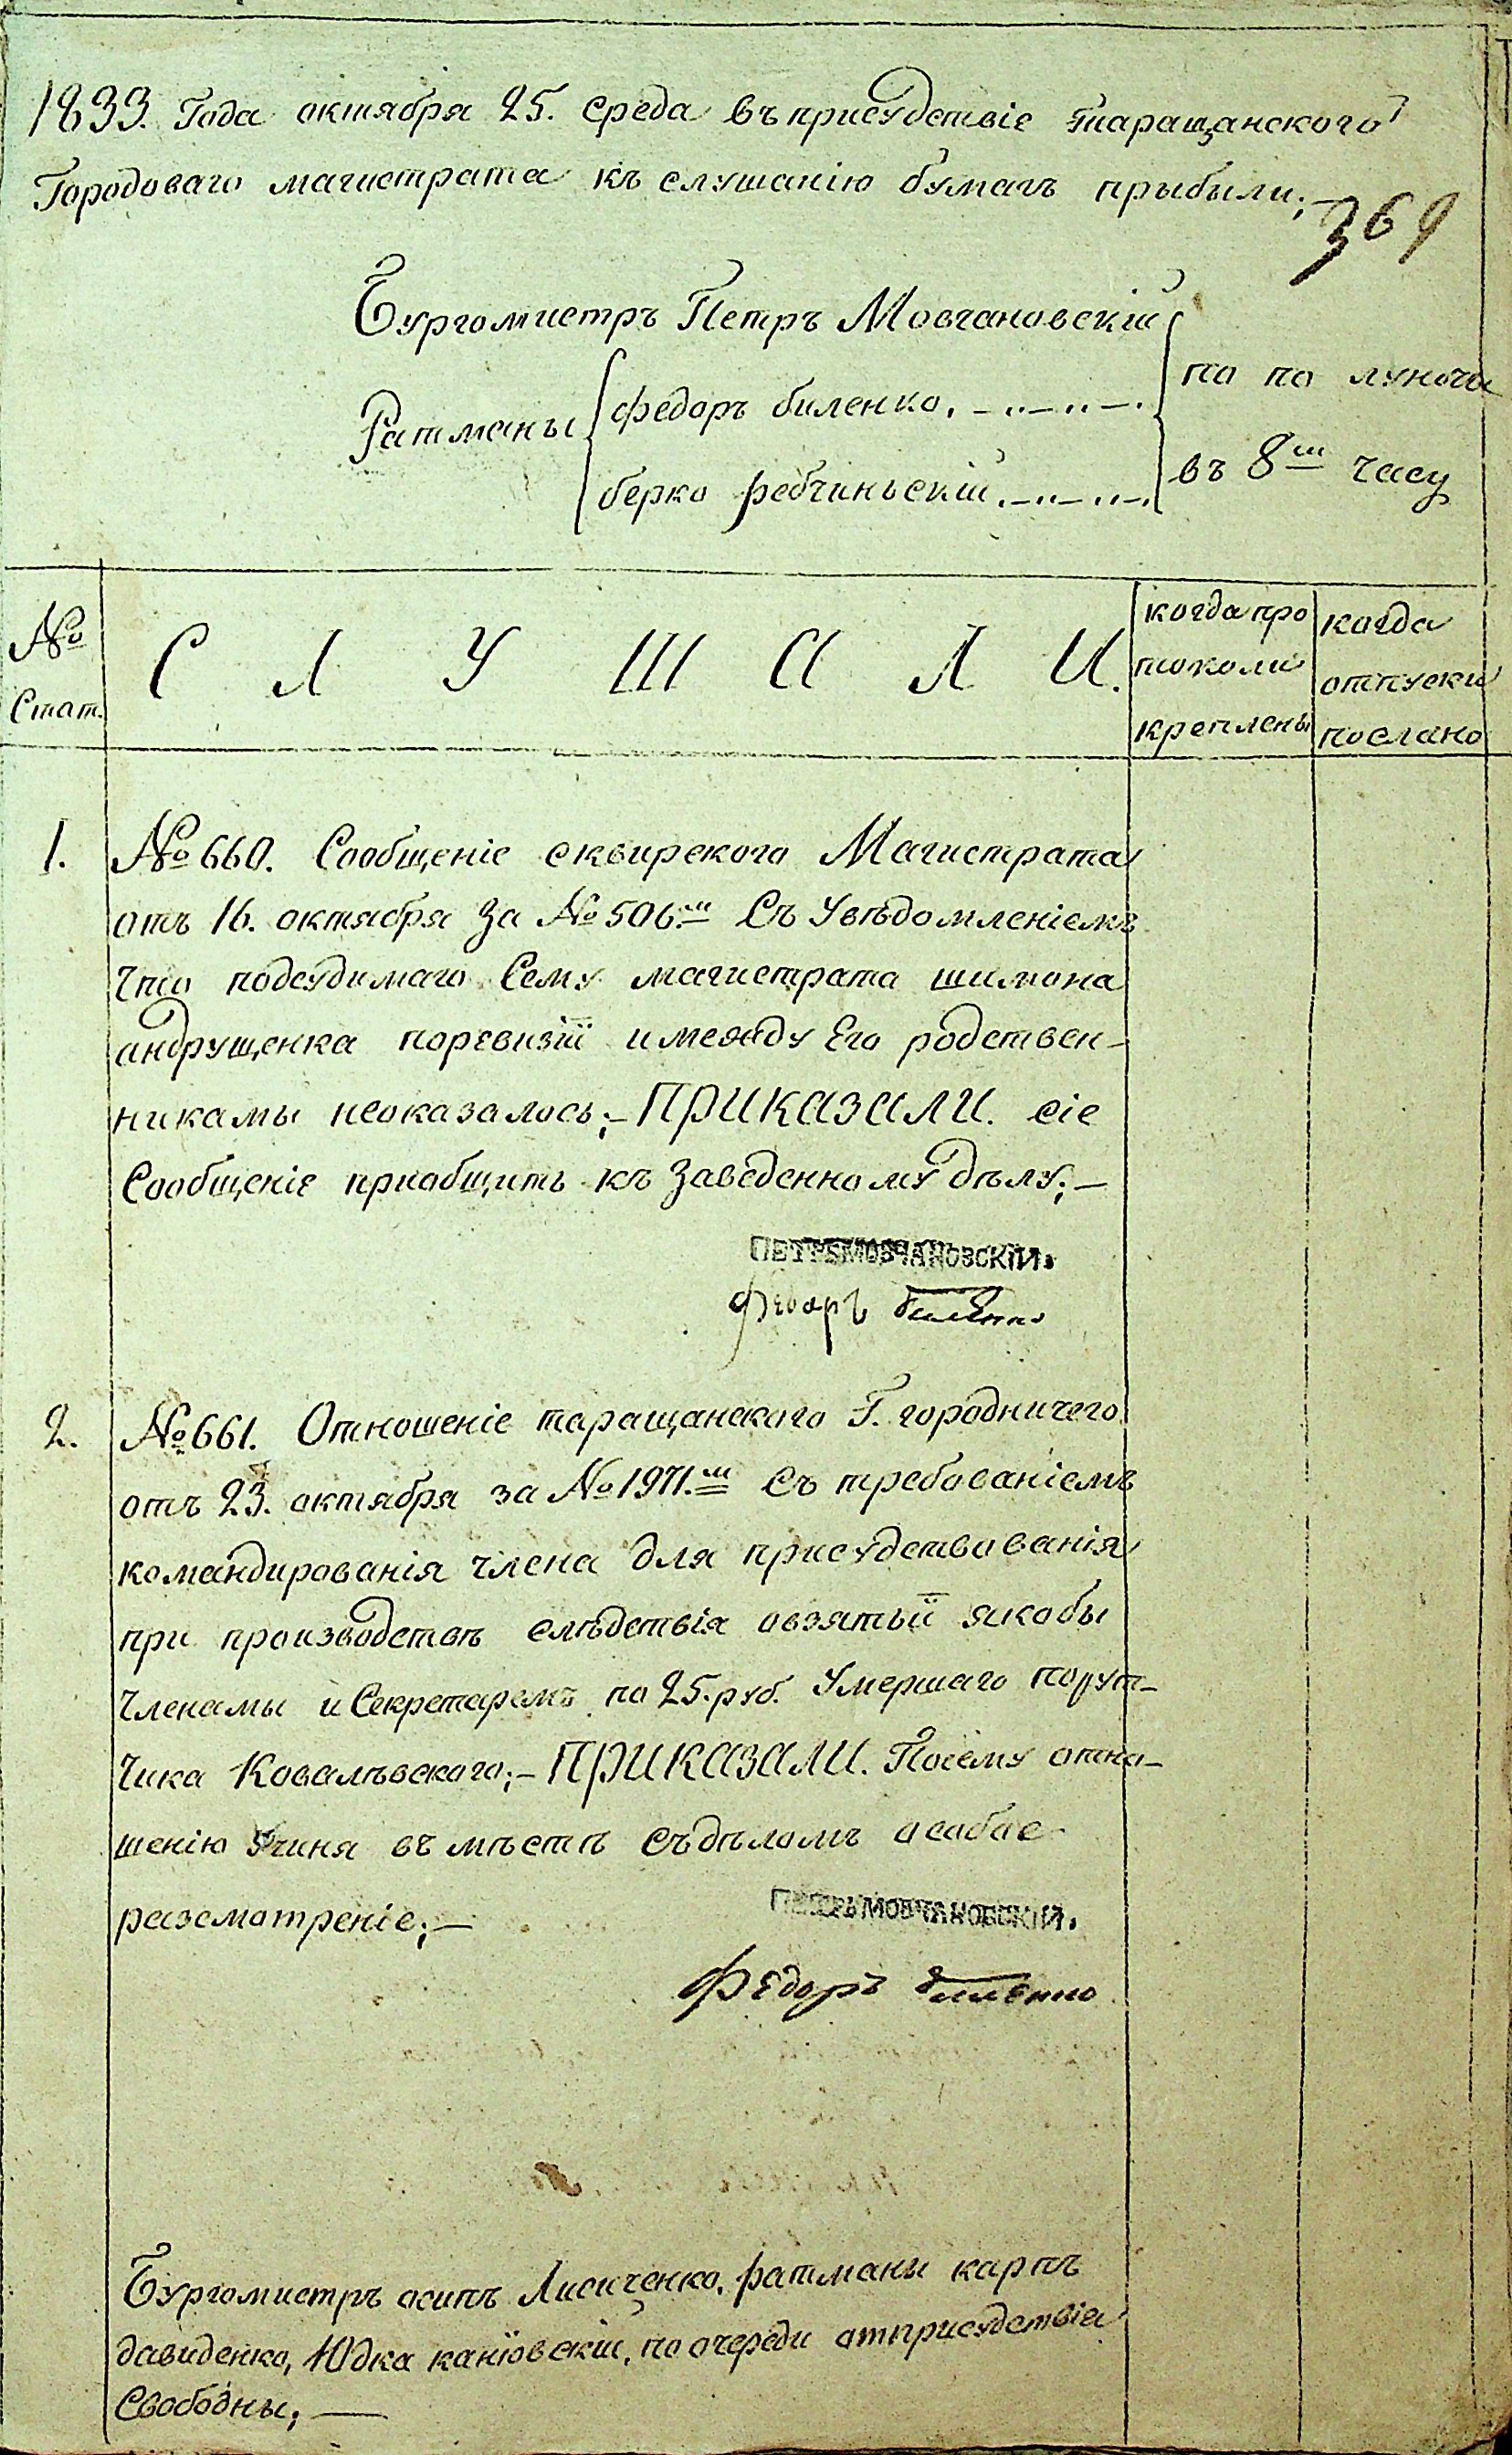 1833. Года октября 25. среда въ присудствіе таращанского
Городоваго магистрата къ слушанію бумагъ прыбыли;
369
Бургомистръ Петръ Мовчановскій
Ратманы
федоръ биленко.
берко ребчинъскій.
по по луночи
въ 8ш часу
№
Стат.
С Л У Ш А Л И.
когда про
токоли
креплены
когда
отпуски
послано
1. №660. Сообщеніе сквирского Магистрата
отъ 16. октября За №506.ш Съ Увѣдомленіемъ
Что подсудимаго Сему магистрата шимона
андрущенка поревизіи имежду Его родствен-
никамы неоказалось;- ПРИКАЗАЛИ. сіе
Сообщеніе приобщить къ Заведенному дѣлу;-
ПЕТРЪ МОВЧАНОВСКІЙ.
Федоръ биленко
2. №661. Отношеніе таращанского Г. городничего
отъ 23. октября за №1971.ш Съ требованіемъ
командированія члена для присудствованія
при производствѣ слѣдствія овзятьи якобы
Членамы и Секретаремъ по 25. руб. Умершаго порут-
Чика Ковалѣвского;- ПРИКАЗАЛИ. Посему отно-
шенію Учиня въ мѣстѣ Съдѣломъ особое
разсмотреніе;-
ПЕТРЪ МОВЧАНОВСКІЙ.
Федоръ биленко
Бургомистръ осипъ Лисиченко, ратманы карпъ
давиденко, Юдка каніовскій, по очереди отприсудствія
Свободны;-